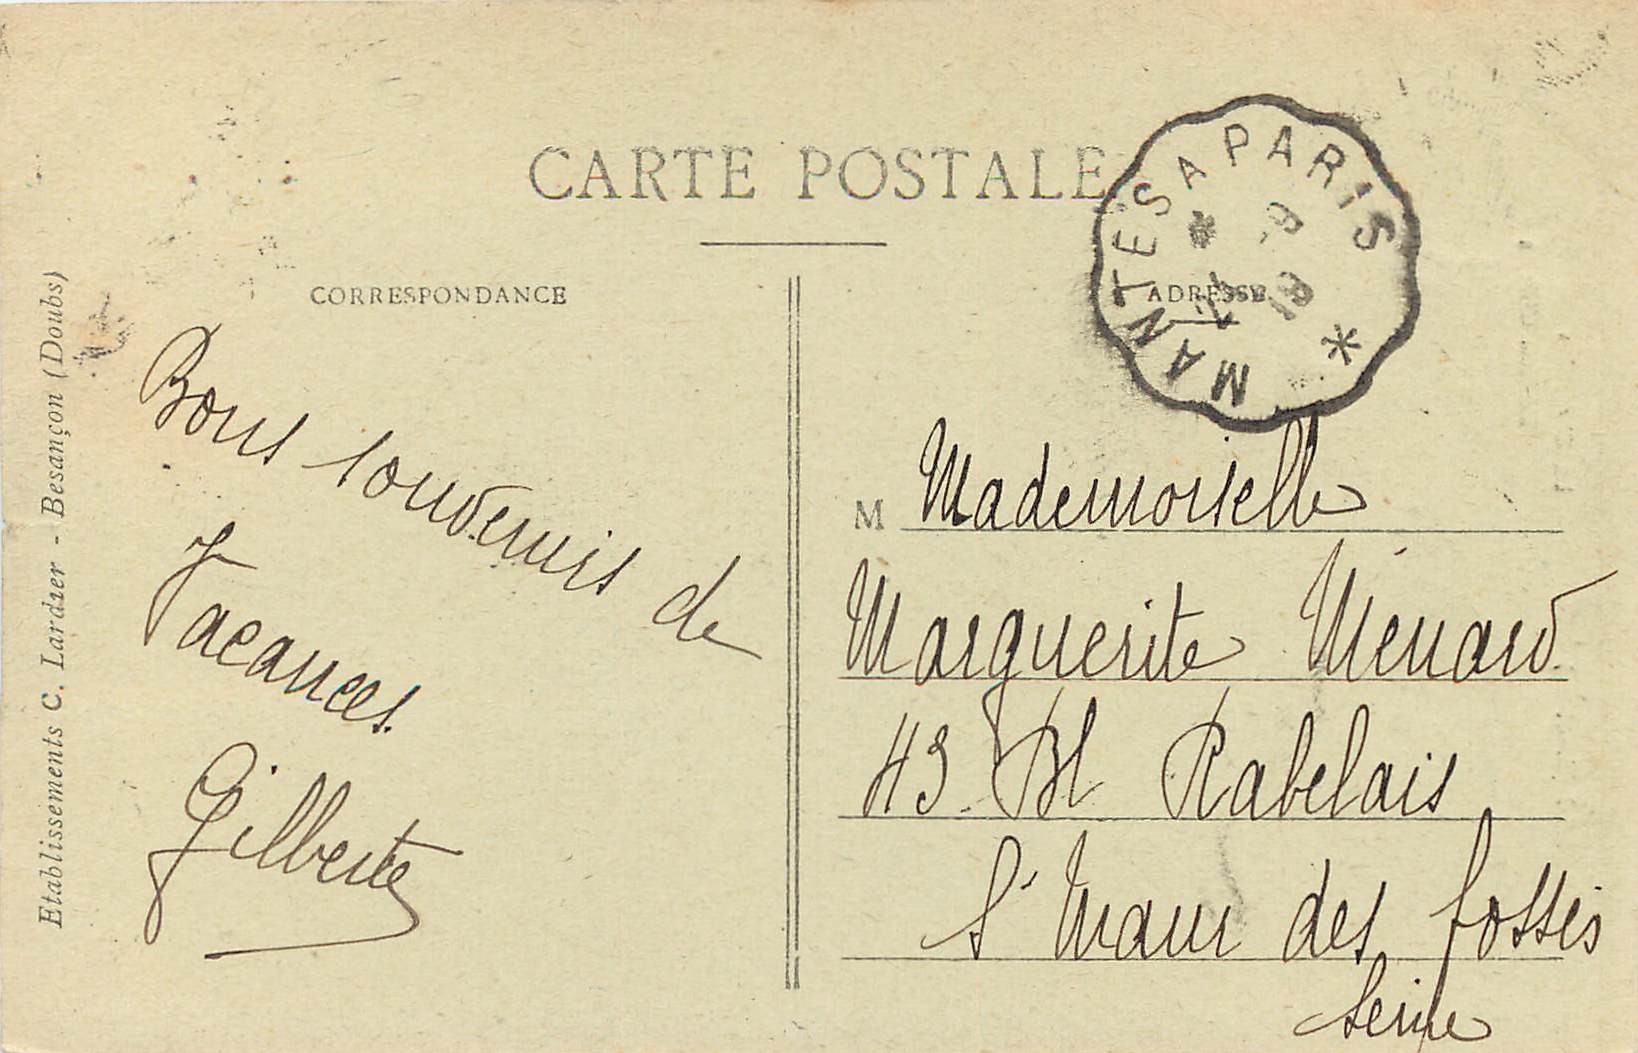 CARTE POSTALE
MANTES A PARIS
CORRESPONDANCE
ADRESSE
Etablissements C. Lardier - Besançon (Doubs)
Bons souvenirs de
Vacances.
Gilberte
M Mademoiselle
Marguerite Ménard
43 Bd Rabelais
St Maur des fossés
Seine